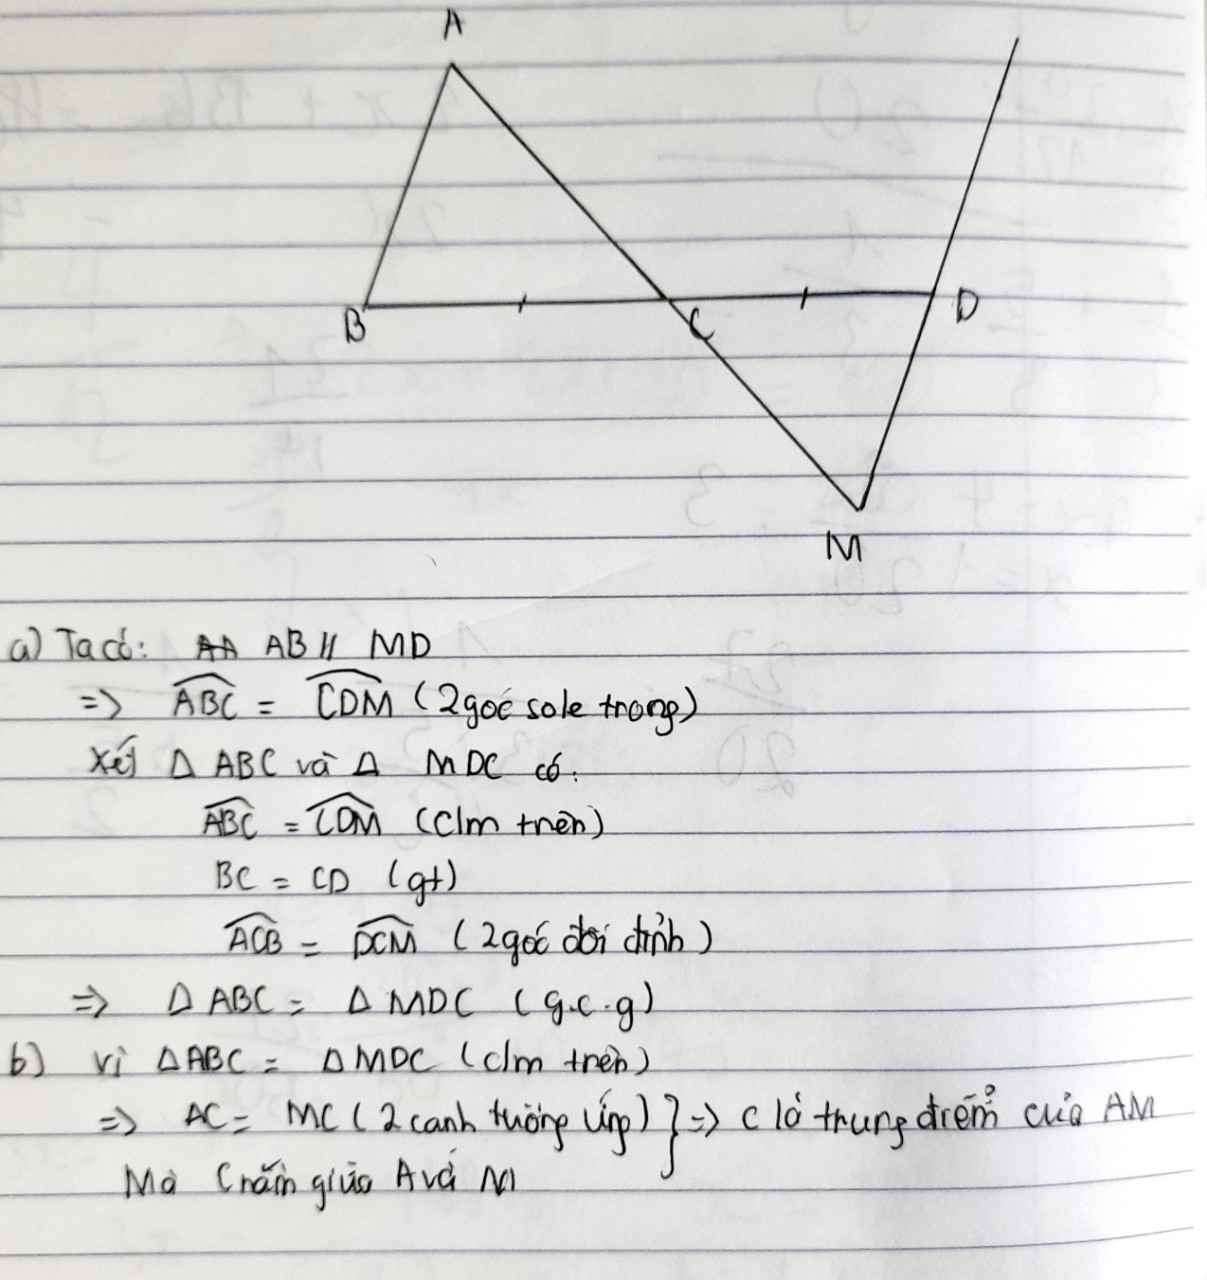 A
B
C
D
M
a) Ta có: AB // MD
=> ABC = CDM (2 góc so le trong)
Xét Δ ABC và Δ MDC có:
ABC = CDM (c/m trên)
BC = CD (gt)
ACB = DCM (2 góc đối đỉnh)
=> Δ ABC = Δ MDC (g.c.g)
b) Vì Δ ABC = Δ MDC (c/m trên)
=> AC = MC (2 cạnh tương ứng) } => C là trung điểm của AM
Mà C nằm giữa A và M